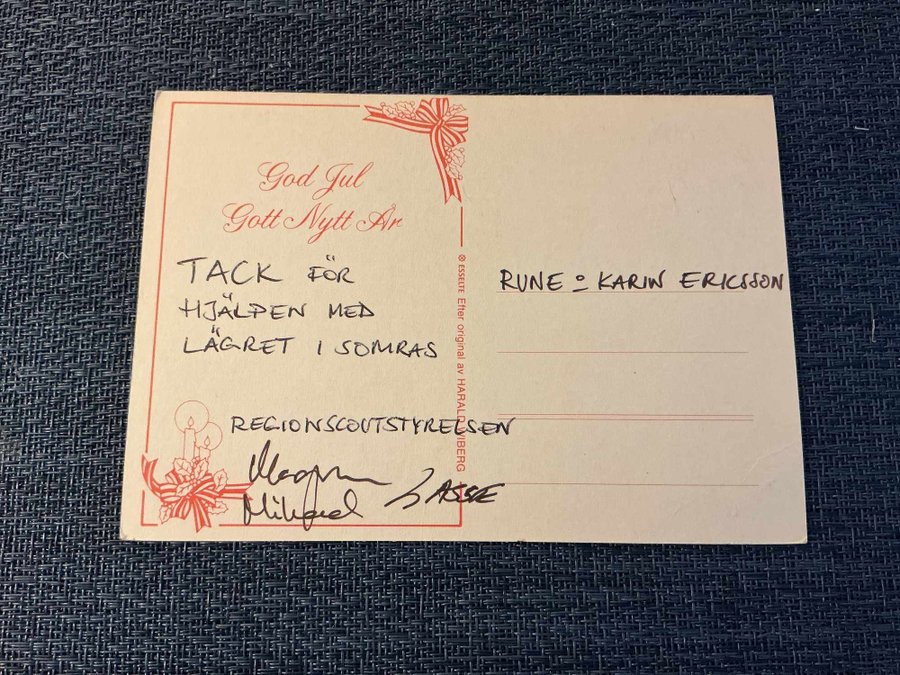 God Jul
Gott Nytt År
TACK FÖR
HJÄLPEN MED
LÄGRET I SOMRAS
REGIONSCOUTSTYRELSEN
Mikael
LASSE
ESSELTE Efter original av HARALD WIBERG
RUNE o KARIN ERICSSON